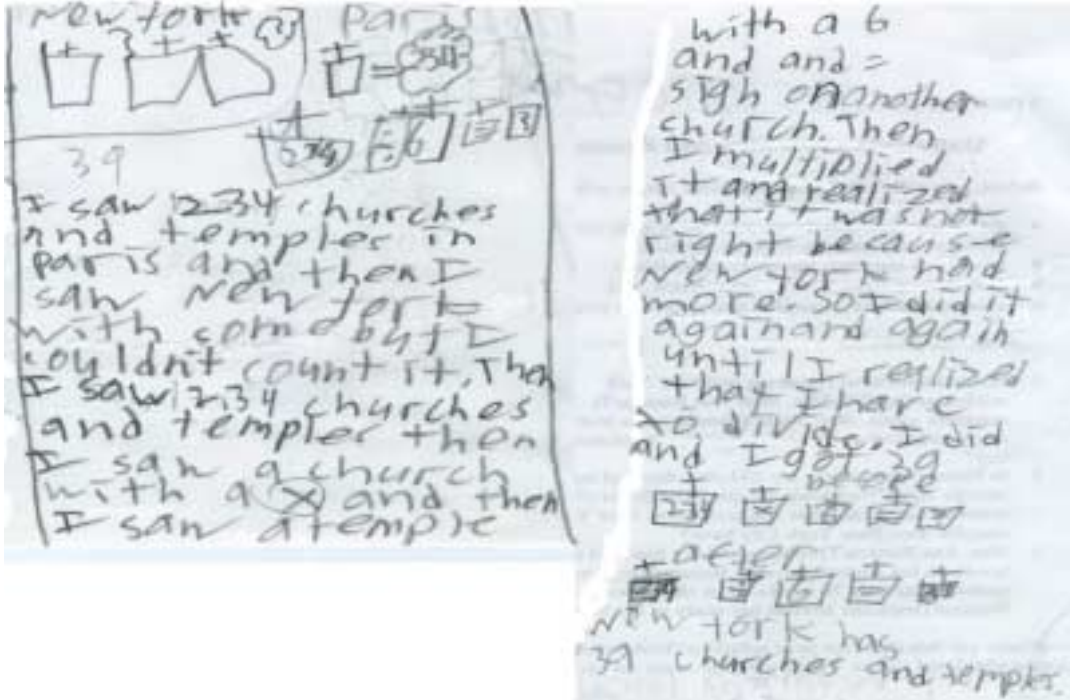 New York Paris
= 234
234 ÷ 6 =
39
I saw 234 churches
and temples in
paris and then I
saw New York
with some but I
couldn't count it. Then
I saw 234 churches
and temples then
I saw a church
with a X and then
I saw a temple
with a 6
and and =
sign on another
church. Then
I multiplied
it and realized
that it was not
right because
New York had
more. So I did it
again and again
until I realized
that I have
to divide. I did
and I got 39
before
234
after
New York has
39 churches and temples.